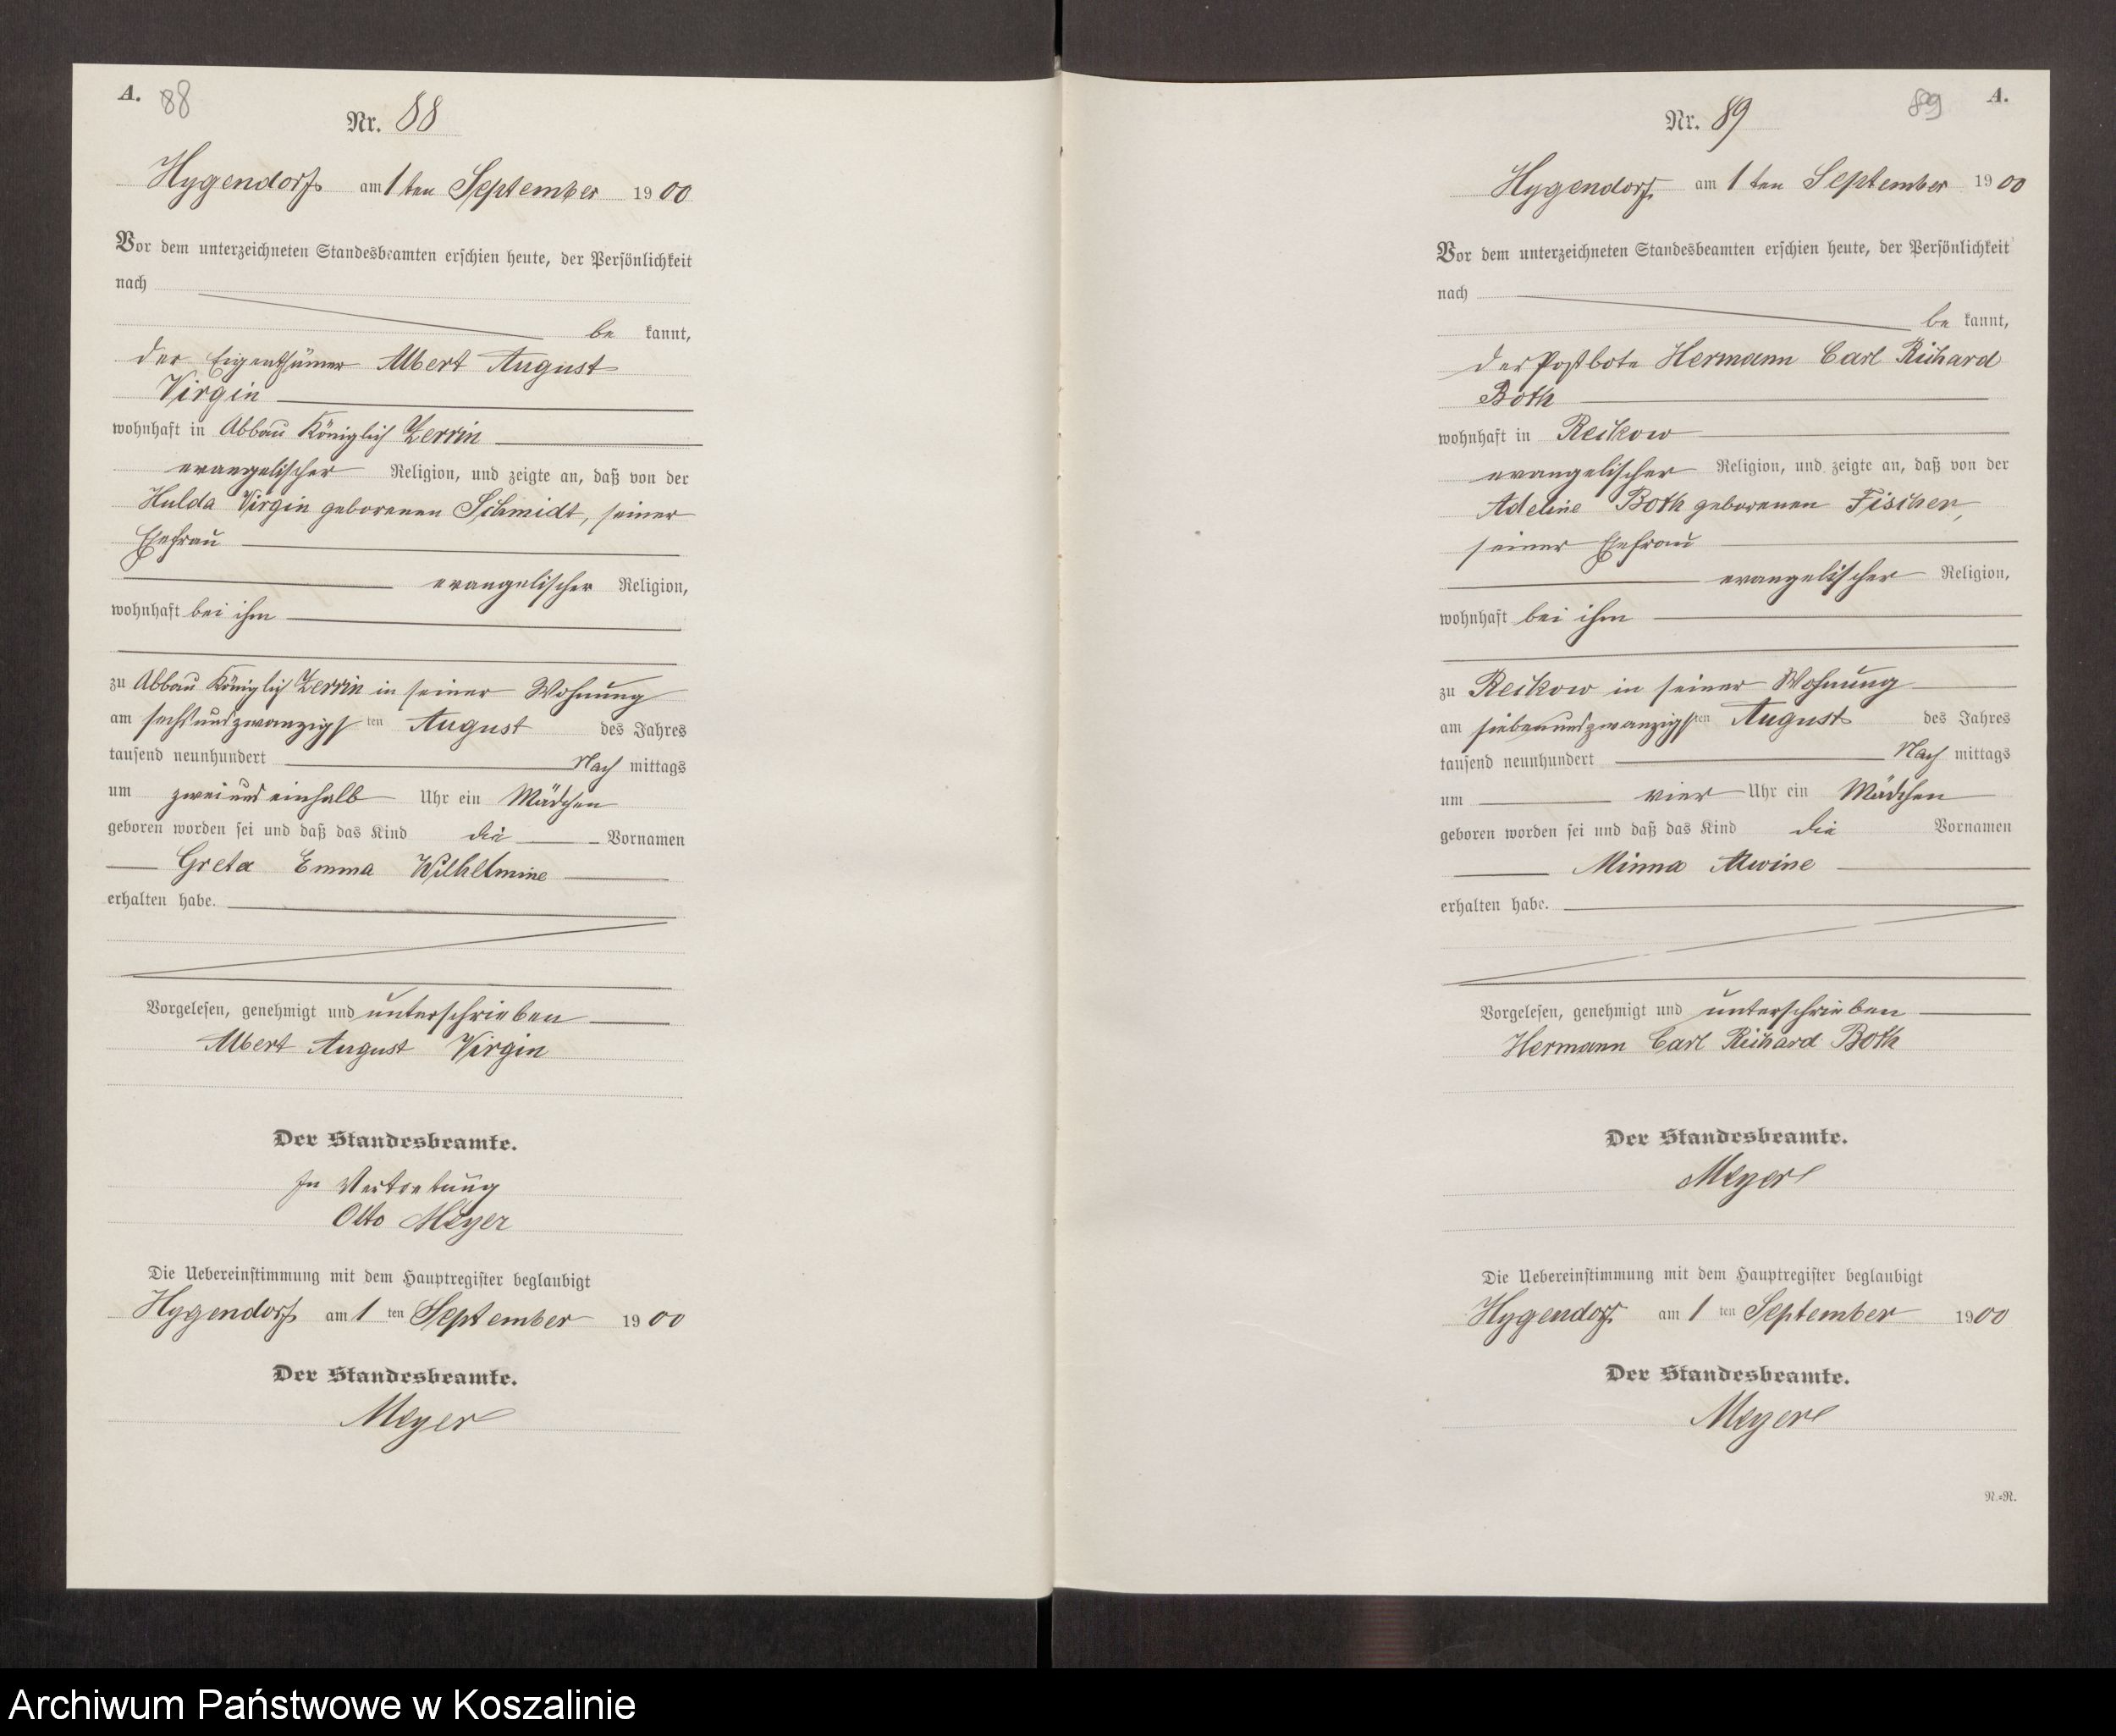 A. 88
Nr. 88
Hygendorf am 1 ten September 1900
Vor dem unterzeichneten Standesbeamten erschien heute, der Persönlichkeit
nach
be kannt,
der Eigenthümer Albert August
Virgin
wohnhaft in Abbau Königlich Zerrin
evangelischer Religion, und zeigte an, daß von der
Hulda Virgin geborenen Schmidt, seiner
Ehefrau
evangelischer Religion,
wohnhaft bei ihm
zu Abbau Königlich Zerrin in seiner Wohnung
am sechsundzwanzigsten August des Jahres
tausend neunhundert Nach mittags
um zweiundeinhalb Uhr ein Mädchen
geboren worden sei und daß das Kind die Vornamen
Greta Emma Wilhelmine
erhalten habe.
Vorgelesen, genehmigt und unterschrieben
Albert August Virgin
Der Standesbeamte.
In Vertretung
Otto Meyer
Die Uebereinstimmung mit dem Hauptregister beglaubigt
Hygendorf am 1 ten September 1900
Der Standesbeamte.
Meyer
89 A.
Nr. 89
Hygendorf am 1 ten September 1900
Vor dem unterzeichneten Standesbeamten erschien heute, der Persönlichkeit
nach
be kannt,
der Postbote Hermann Carl Richard
Both
wohnhaft in Reckow
evangelischer Religion, und zeigte an, daß von der
Adeline Both geborenen Fischer,
seiner Ehefrau
evangelischer Religion,
wohnhaft bei ihm
zu Reckow in seiner Wohnung
am siebenundzwanzigsten August des Jahres
tausend neunhundert Nach mittags
um vier Uhr ein Mädchen
geboren worden sei und daß das Kind die Vornamen
Minna Alwine
erhalten habe.
Vorgelesen, genehmigt und unterschrieben
Hermann Carl Richard Both
Der Standesbeamte.
Meyer
Die Uebereinstimmung mit dem Hauptregister beglaubigt
Hygendorf am 1 ten September 1900
Der Standesbeamte.
Meyer
N.=N.
Archiwum Państwowe w Koszalinie